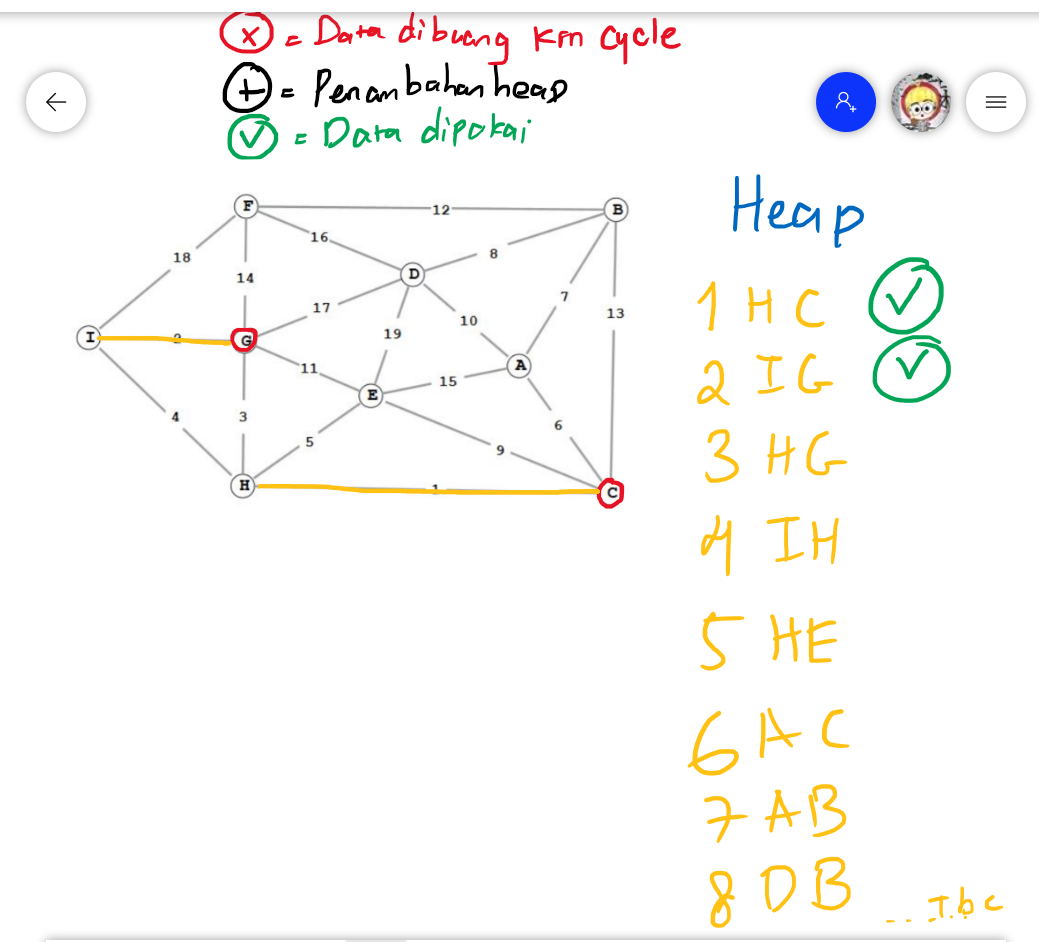 x = Data dibuang krn cycle
+ = Penambahan heap
✓ = Data dipakai
Heap
F 12 B
16
8
18
D
14
17
7
10
13
19
I 2 G
11
A
15
E
4
3
6
5
9
H 1 C
1 HC ✓
2 IG ✓
3 HG
4 IH
5 HE
6 AC
7 AB
8 DB ... T.b.c